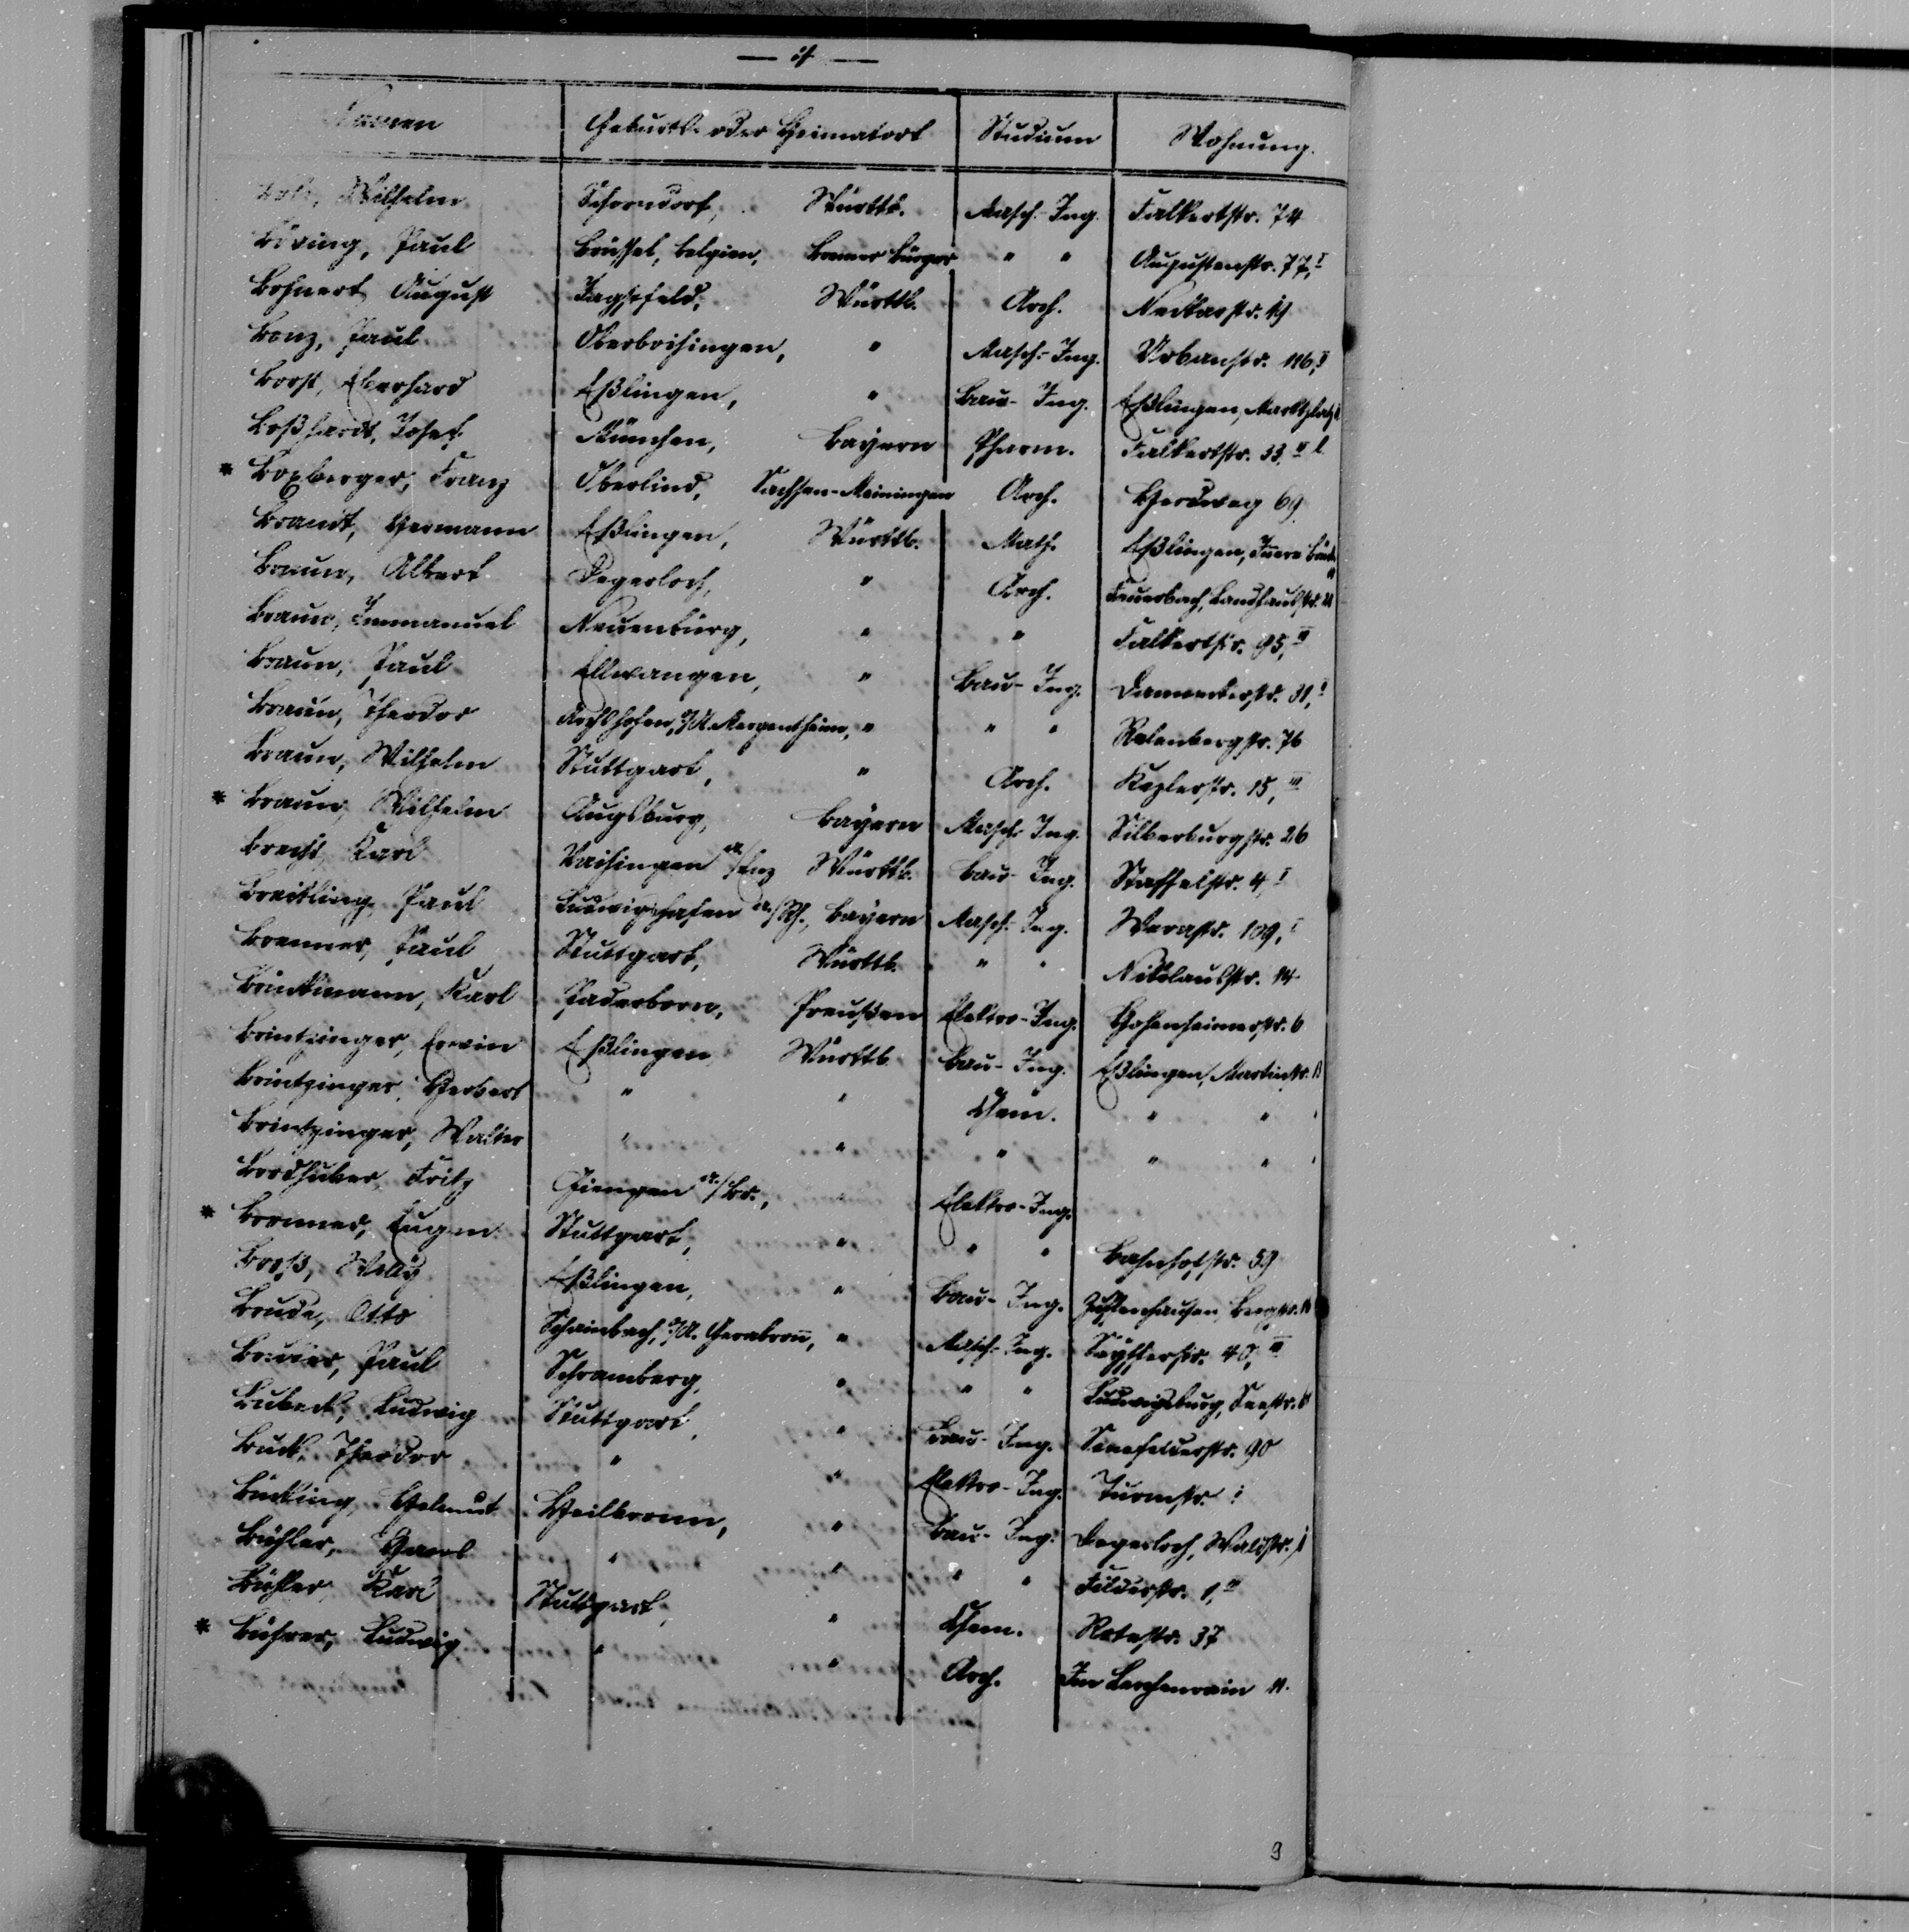 Namen Geburts- oder Heimatort Studium Wohnung.
Wilhelm Schorndorf, Württb. Masch.-Ing. Falkertstr. 74
Böving, Paul Brüssel, Belgien, Bremer Bürger " " Augustenstr. 77, I
Bohnert August Jagstfeld, Württb. Arch. Neckarstr.
Bonz, Paul Oberboihingen, " Masch.-Ing. Urbanstr. 116, II
Borst, Eberhard Eßlingen, " Bau-Ing. Eßlingen, Marktplatz
Boßhardt, Josef München, Bayern Pharm. Falkertstr. 33, II l.
* Boxberger, Franz Oberlind, Sachsen-Meiningen Arch. Herdweg 69.
Brandt, Hermann Eßlingen, Württb. Math. Eßlingen, Innere
Braun, Albert Degerloch, " Arch. Feuerbach, Landhausstr. 21
Braun, Immanuel Neuenbürg, " " Falkertstr. 95, III
Braun, Paul Ellwangen, " Bau-Ing. Danneckerstr. 31, I
Braun, Theodor Archshofen, O/A. Mergentheim, " " " Rotenbergstr. 76
Braun, Wilhelm Stuttgart, " Arch. Keplerstr. 15, III
* Braun, Wilhelm Augsburg, Bayern Masch.-Ing. Silberburgstr. 26
Brecht, Karl Vaihingen a/Enz Württb. Bau-Ing. Staffelstr. 4, I
Breitling, Paul Ludwigshafen a./Rh., Bayern Masch.-Ing. Werastr. 109, I
Brenner, Paul Stuttgart, Württb. " " Nikolausstr. 14
Brinkmann, Karl Paderborn, Preußen Elektro-Ing. Hohenheimerstr. 6
Brintzinger, Erwin Eßlingen, Württb. Bau-Ing. Eßlingen, Martinstr.
Brintzinger, Herbert " " Chem. " "
Brintzinger, Walter " " " " "
Brodhuber, Fritz Giengen a./Br., " Elektro-Ing.
* Brommer, Eugen Stuttgart, " " " Bahnhofstr. 59
Broß, Willy Eßlingen, " Bau-Ing. Zuffenhausen, Bergstr.
Bruder, Otto Schainbach, O/A. Gerabronn, " Masch.-Ing. Seyfferstr. 40, III
Paul Schramberg, " " " Ludwigsburg, Seestr.
Bubeck, Ludwig Stuttgart, " Bau-Ing. Senefelderstr. 90
Buck, Theodor " " Elektro-Ing. Turmstr.
Bücking, Helmut Heilbronn, " Bau-Ing. Degerloch, Waldstr.
Bühler, Hans " " " " Filderstr. 1, III
Bühler, Karl Stuttgart, " Chem. Rotestr. 37
* Bührer, Ludwig " " Arch. Im Lerchenrain 11.
9